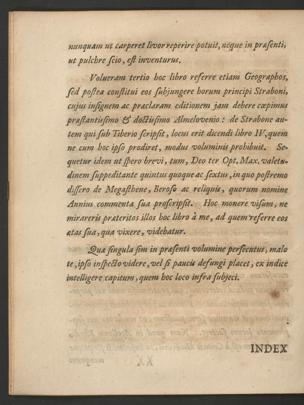 nunquam ut carperet livor reperire potuit, neque in præsenti,
ut pulchre scio, est inventurus.
Volueram tertio hoc libro referre etiam Geographos,
sed postea constitui eos subjungere horum principi Straboni,
cujus insignem ac præclaram editionem jam debere cœpimus
præstantissimo & doctissimo Almelovenio: de Strabone au-
tem qui sub Tiberio scripsit, locus erit dicendi libro IV. quem
ne cum hoc ipso prodiret, modus voluminis prohibuit. Se-
quetur idem ut spero brevi, tum, Deo ter Opt. Max. valetu-
dinem suppeditante quintus quoque ac sextus, in quo postremo
dissero de Megasthene, Beroso ac reliquis, quorum nomine
Annius commenta sua proscripsit. Hoc monere visum, ne
mirareris præteritos illos hoc libro à me, ad quem referre eos
ætas sua, qua vixere, videbatur.
Quæ singula sim in præsenti volumine persecutus, malo
te, ipso inspecto videre, vel si paucis defungi placet, ex indice
intelligere capitum, quem hoc loco infra subjeci.
INDEX